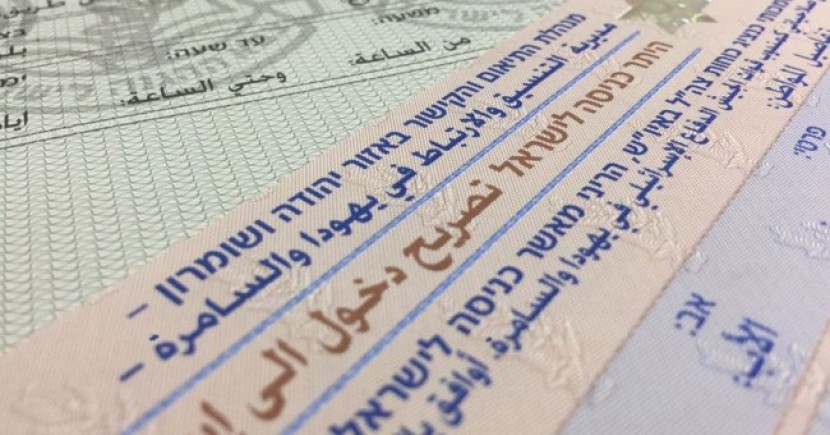 משעה:
עד שעה:
من الساعة:
وحتي الساعة:
מנהלת התיאום והקישור באזור יהודה ושומרון -
مديرية التنسيق والارتباط في يهودا والسامرة -
היתר כניסה לישראל تصريح دخول الى
כוחות צה"ל באיו"ש, הריני מאשר כניסה לישראל
الإسرائيلي في يهودا والسامرة. أوافق
אב:
الأب: